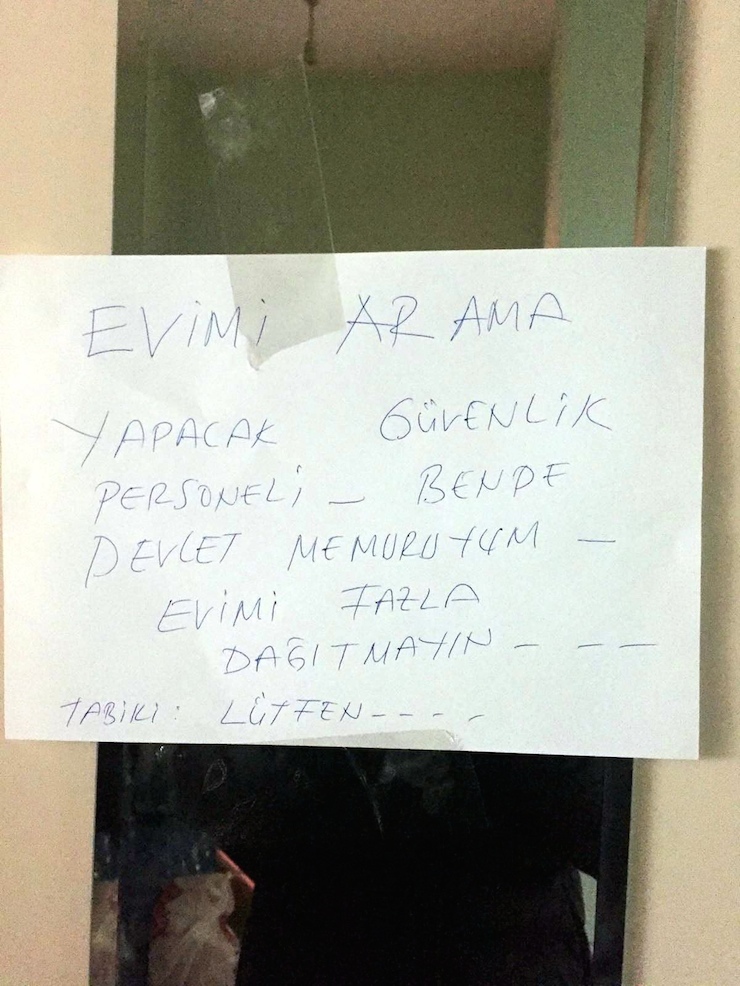 EVİMİ ARAMA
YAPACAK GÜVENLİK
PERSONELİ _ BENDE
DEVLET MEMURUYUM _
EVİMİ FAZLA
DAĞITMAYIN _ _ _
TABİKİ: LÜTFEN - - - -